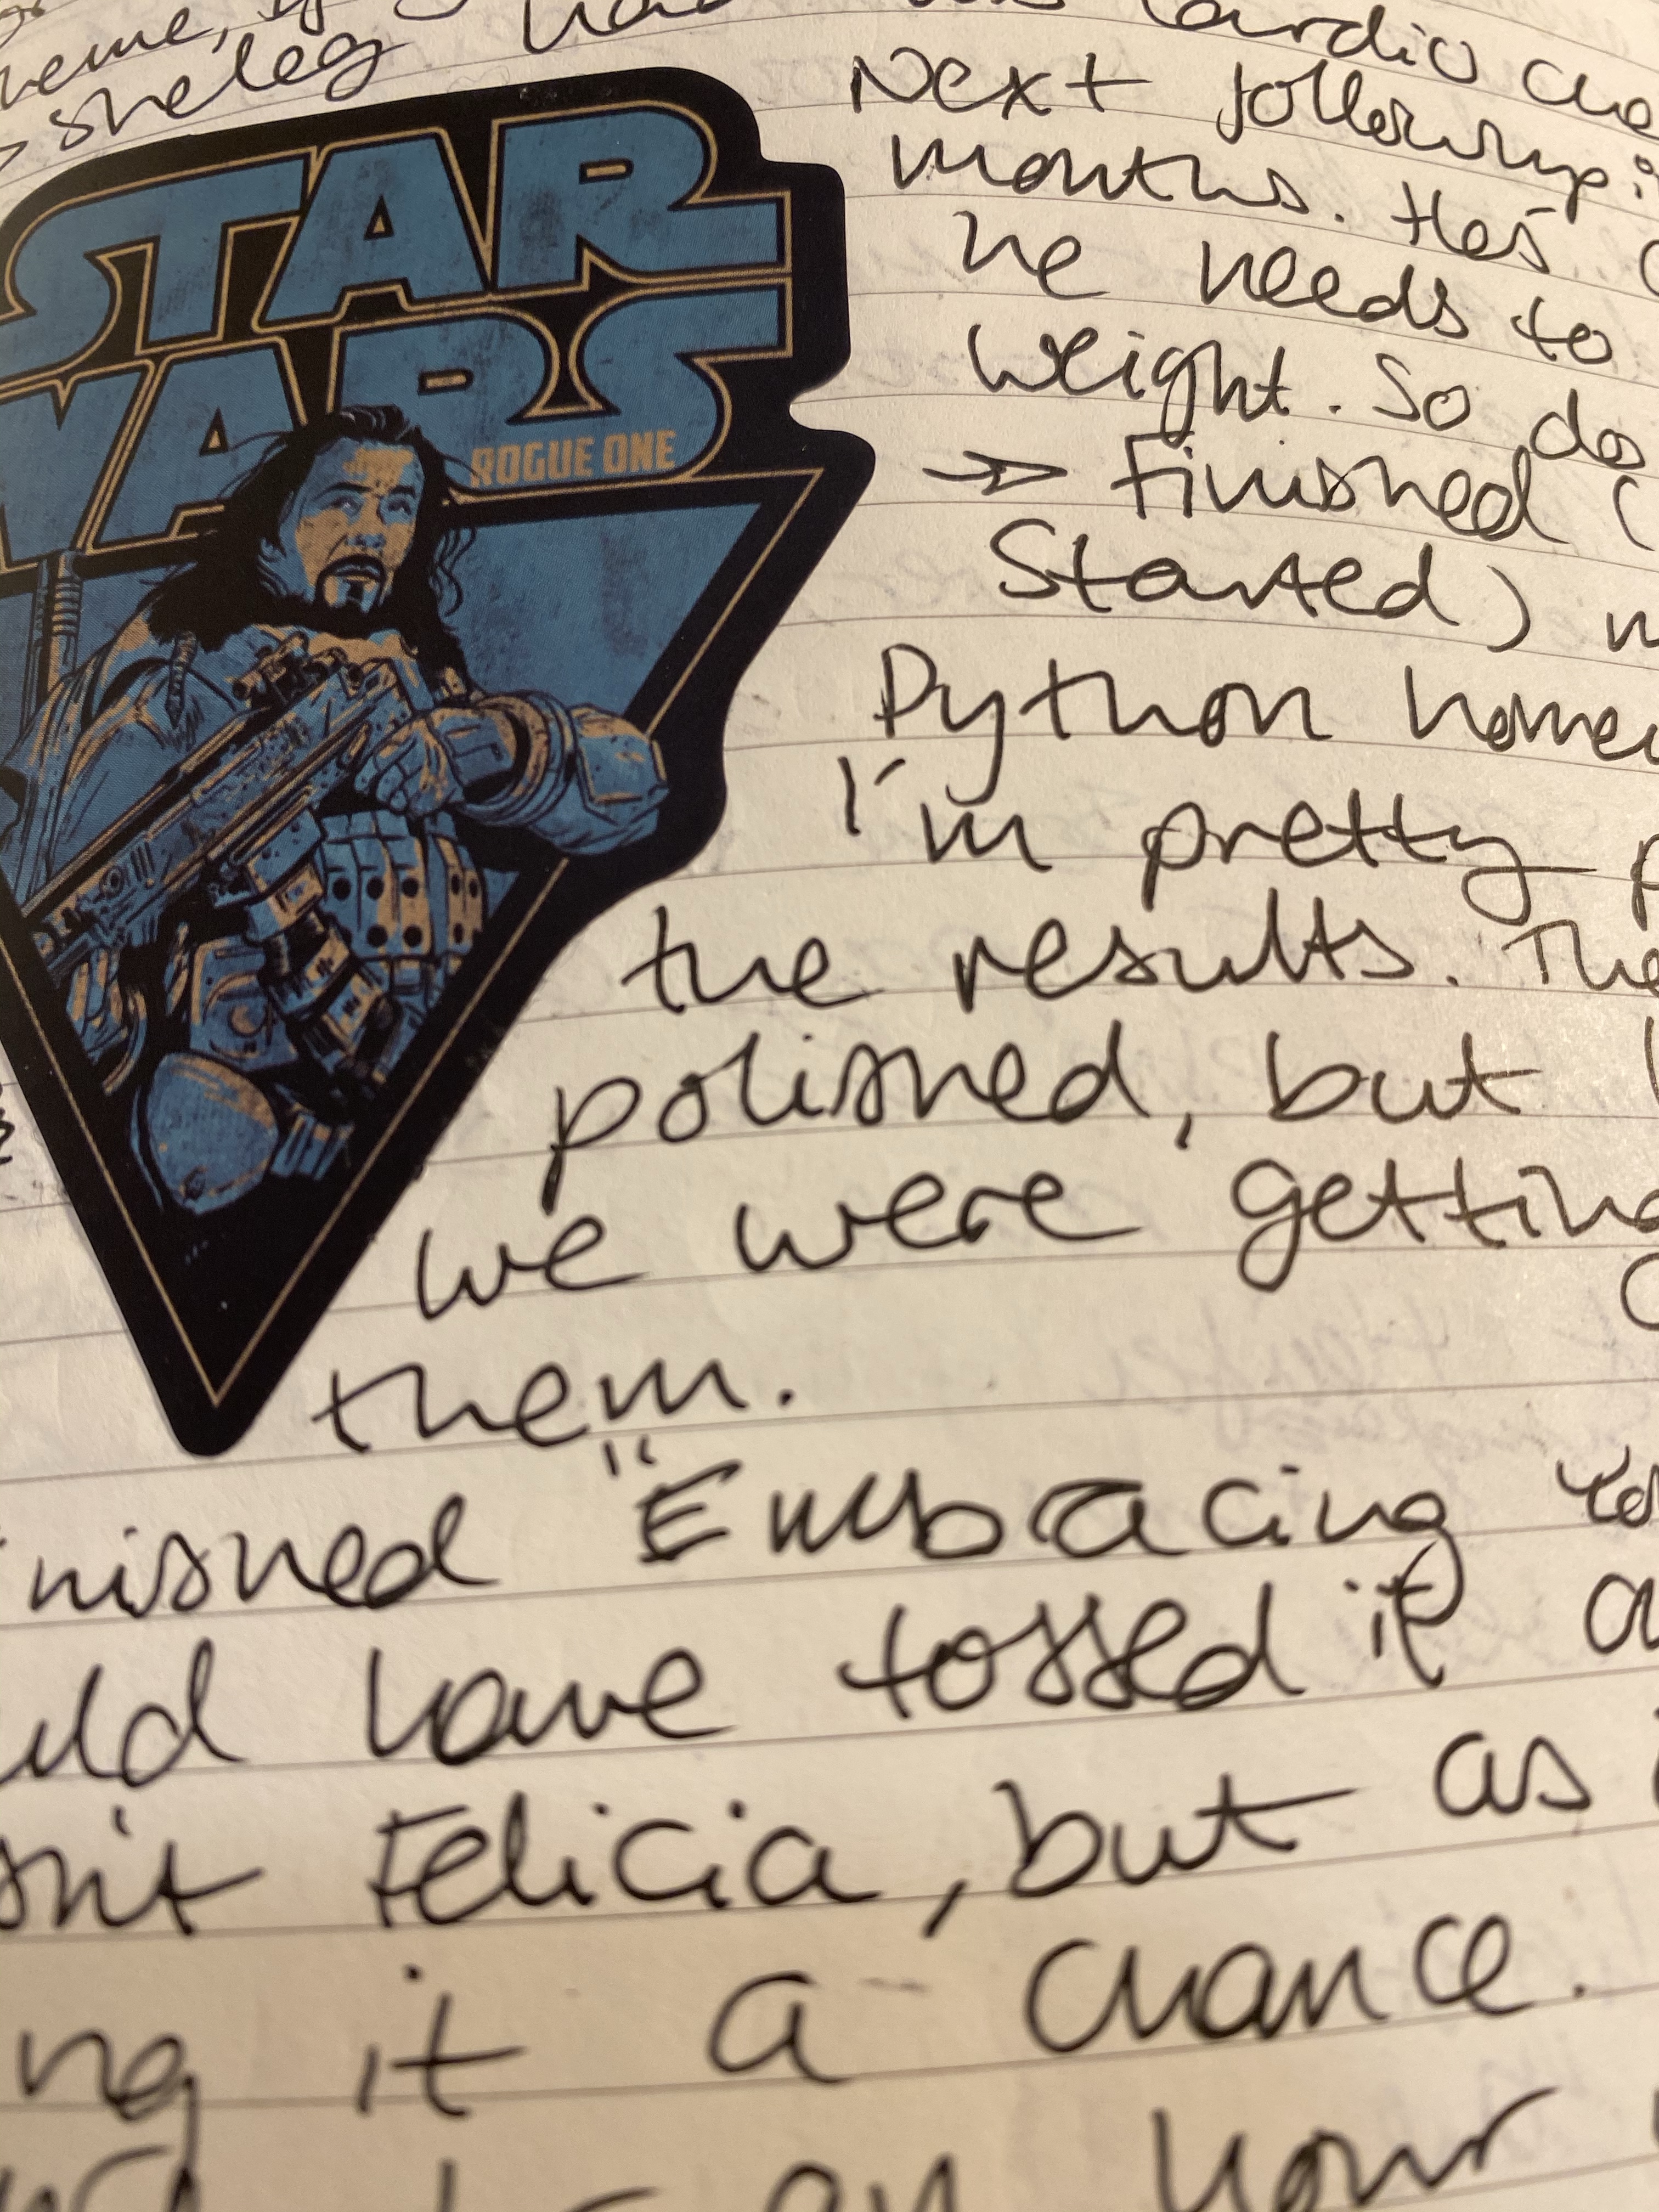 STAR
WARS
ROGUE ONE
sheleg had his cardio che
Next followup:
months. He's
he needs to
weight. So do
→ Finished (
started)
Python homew
I'm pretty p
the results. The
polished, but
we were getting
them.
nished "Embracing
uld have tossed it
sn't Felicia, but as i
ng it a chance.
an hour